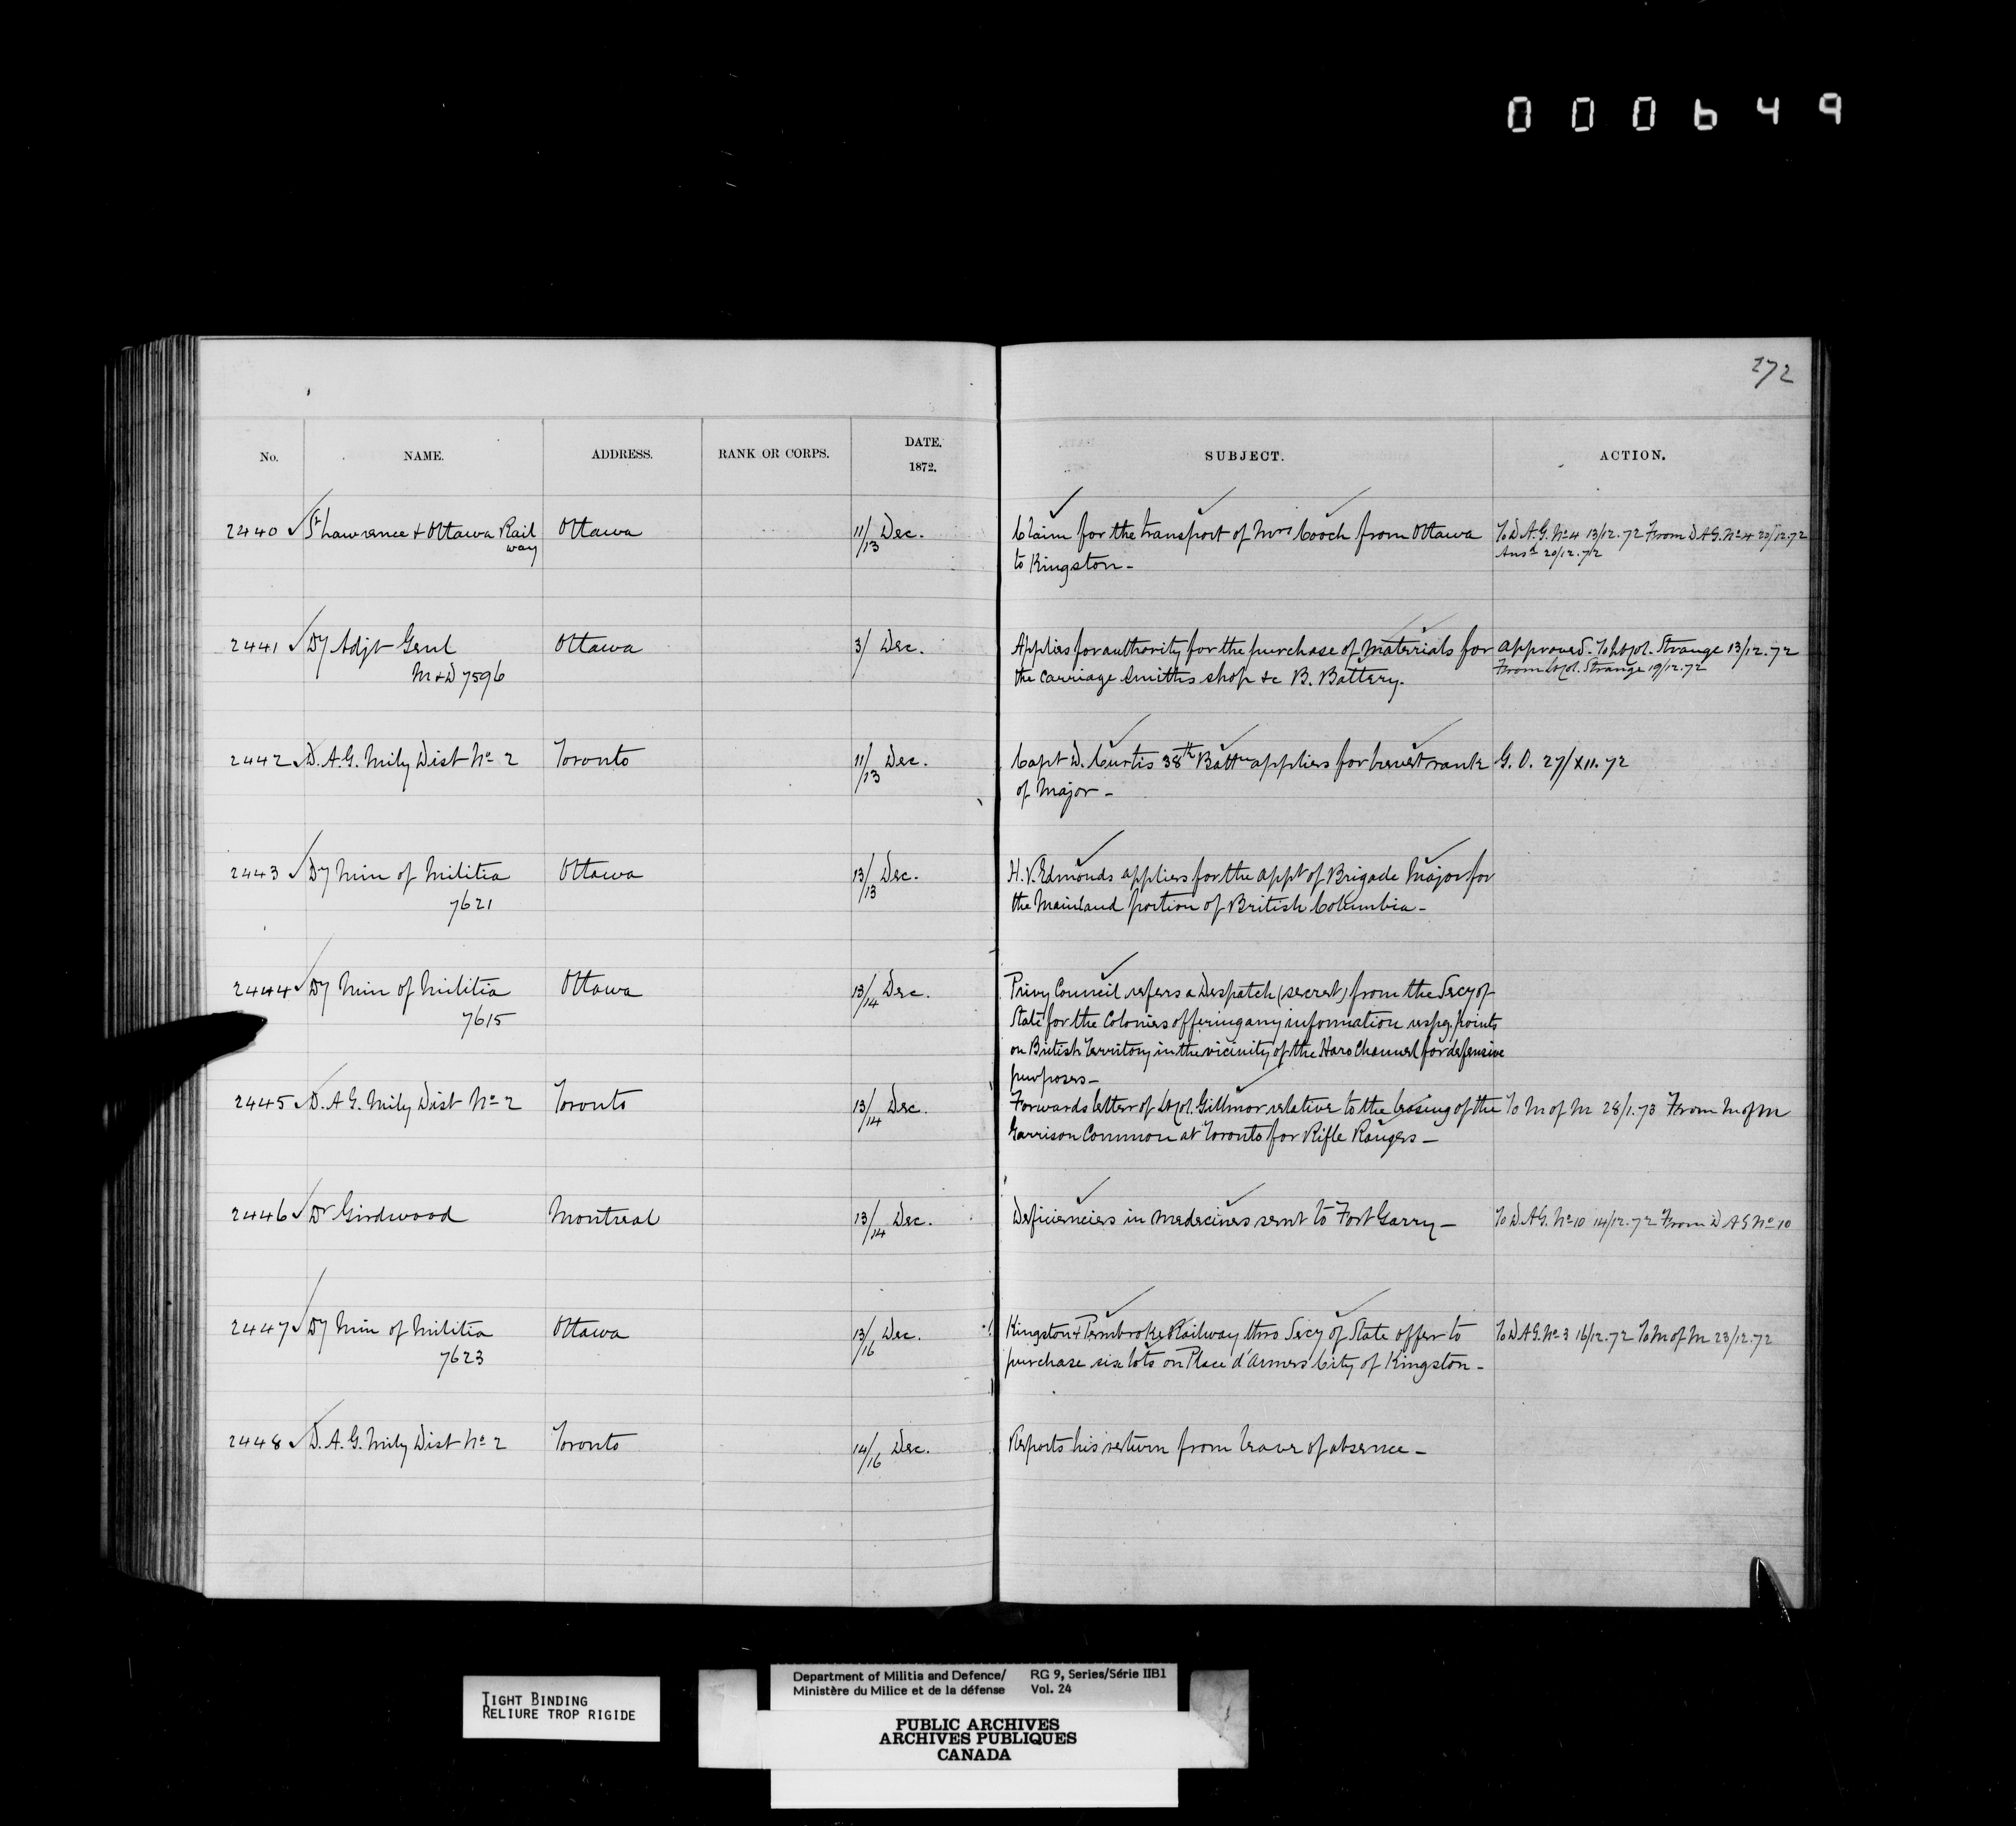 000649
272
No. NAME. ADDRESS. RANK OR CORPS. DATE. 1872. SUBJECT. ACTION.
2440 St Lawrence & Ottawa Rail Ottawa 11/13 Dec. Claim for the transport of Mrs Cooch from Ottawa To D.A.G. No 4 13/12.72 From D.A.G. No 4 20/12.72
way to Kingston - Ansd 20/12.72
2441 Dy Adjt Genl Ottawa 3/ Dec. Applies for authority for the purchase of materials for Approved. To Lt Col. Strange 13/12.72
M&D 7596 the carriage Smiths shop &c B. Battery. From Lt Col. Strange 19/12.72
2442 D.A.G. Mily Dist No 2 Toronto 11/13 Dec. Capt D. Curtis 38th Battn applies for brevet rank G.O. 27/XII.72
of Major -
2443 Dy Min of Militia Ottawa 13/13 Dec. H.V. Edmonds applies for the appt of Brigade Major for
7621 the Mainland portion of British Columbia -
2444 Dy Min of Militia Ottawa 13/14 Dec. Privy Council refers a Despatch (secret) from the Secy of
7615 State for the Colonies offering any information respg. points
on British Territory in the vicinity of the Haro Channel for defensive
purposes -
2445 D.A.G. Mily Dist No 2 Toronto 13/14 Dec. Forwards letter of Lt Col. Gillmor relative to the leasing of the To M of M 28/1.73 From M of M
Garrison Common at Toronto for Rifle Ranges -
2446 Dr Girdwood Montreal 13/14 Dec. Deficiencies in medecines sent to Fort Garry - To D.A.G. No 10 14/12.72 From D.A.G No 10
2447 Dy Min of Militia Ottawa 13/16 Dec. Kingston & Pembroke Railway thro Secy of State offer to To D.A.G. No 3 16/12.72 To M of M 23/12.72
7623 purchase six lots on Place d'Armes City of Kingston -
2448 D.A.G. Mily Dist No 2 Toronto 14/16 Dec. Reports his return from leave of absence -
TIGHT BINDING
RELIURE TROP RIGIDE
Department of Militia and Defence/ RG 9, Series/Série IIB1
Ministère du Milice et de la défense Vol. 24
PUBLIC ARCHIVES
ARCHIVES PUBLIQUES
CANADA